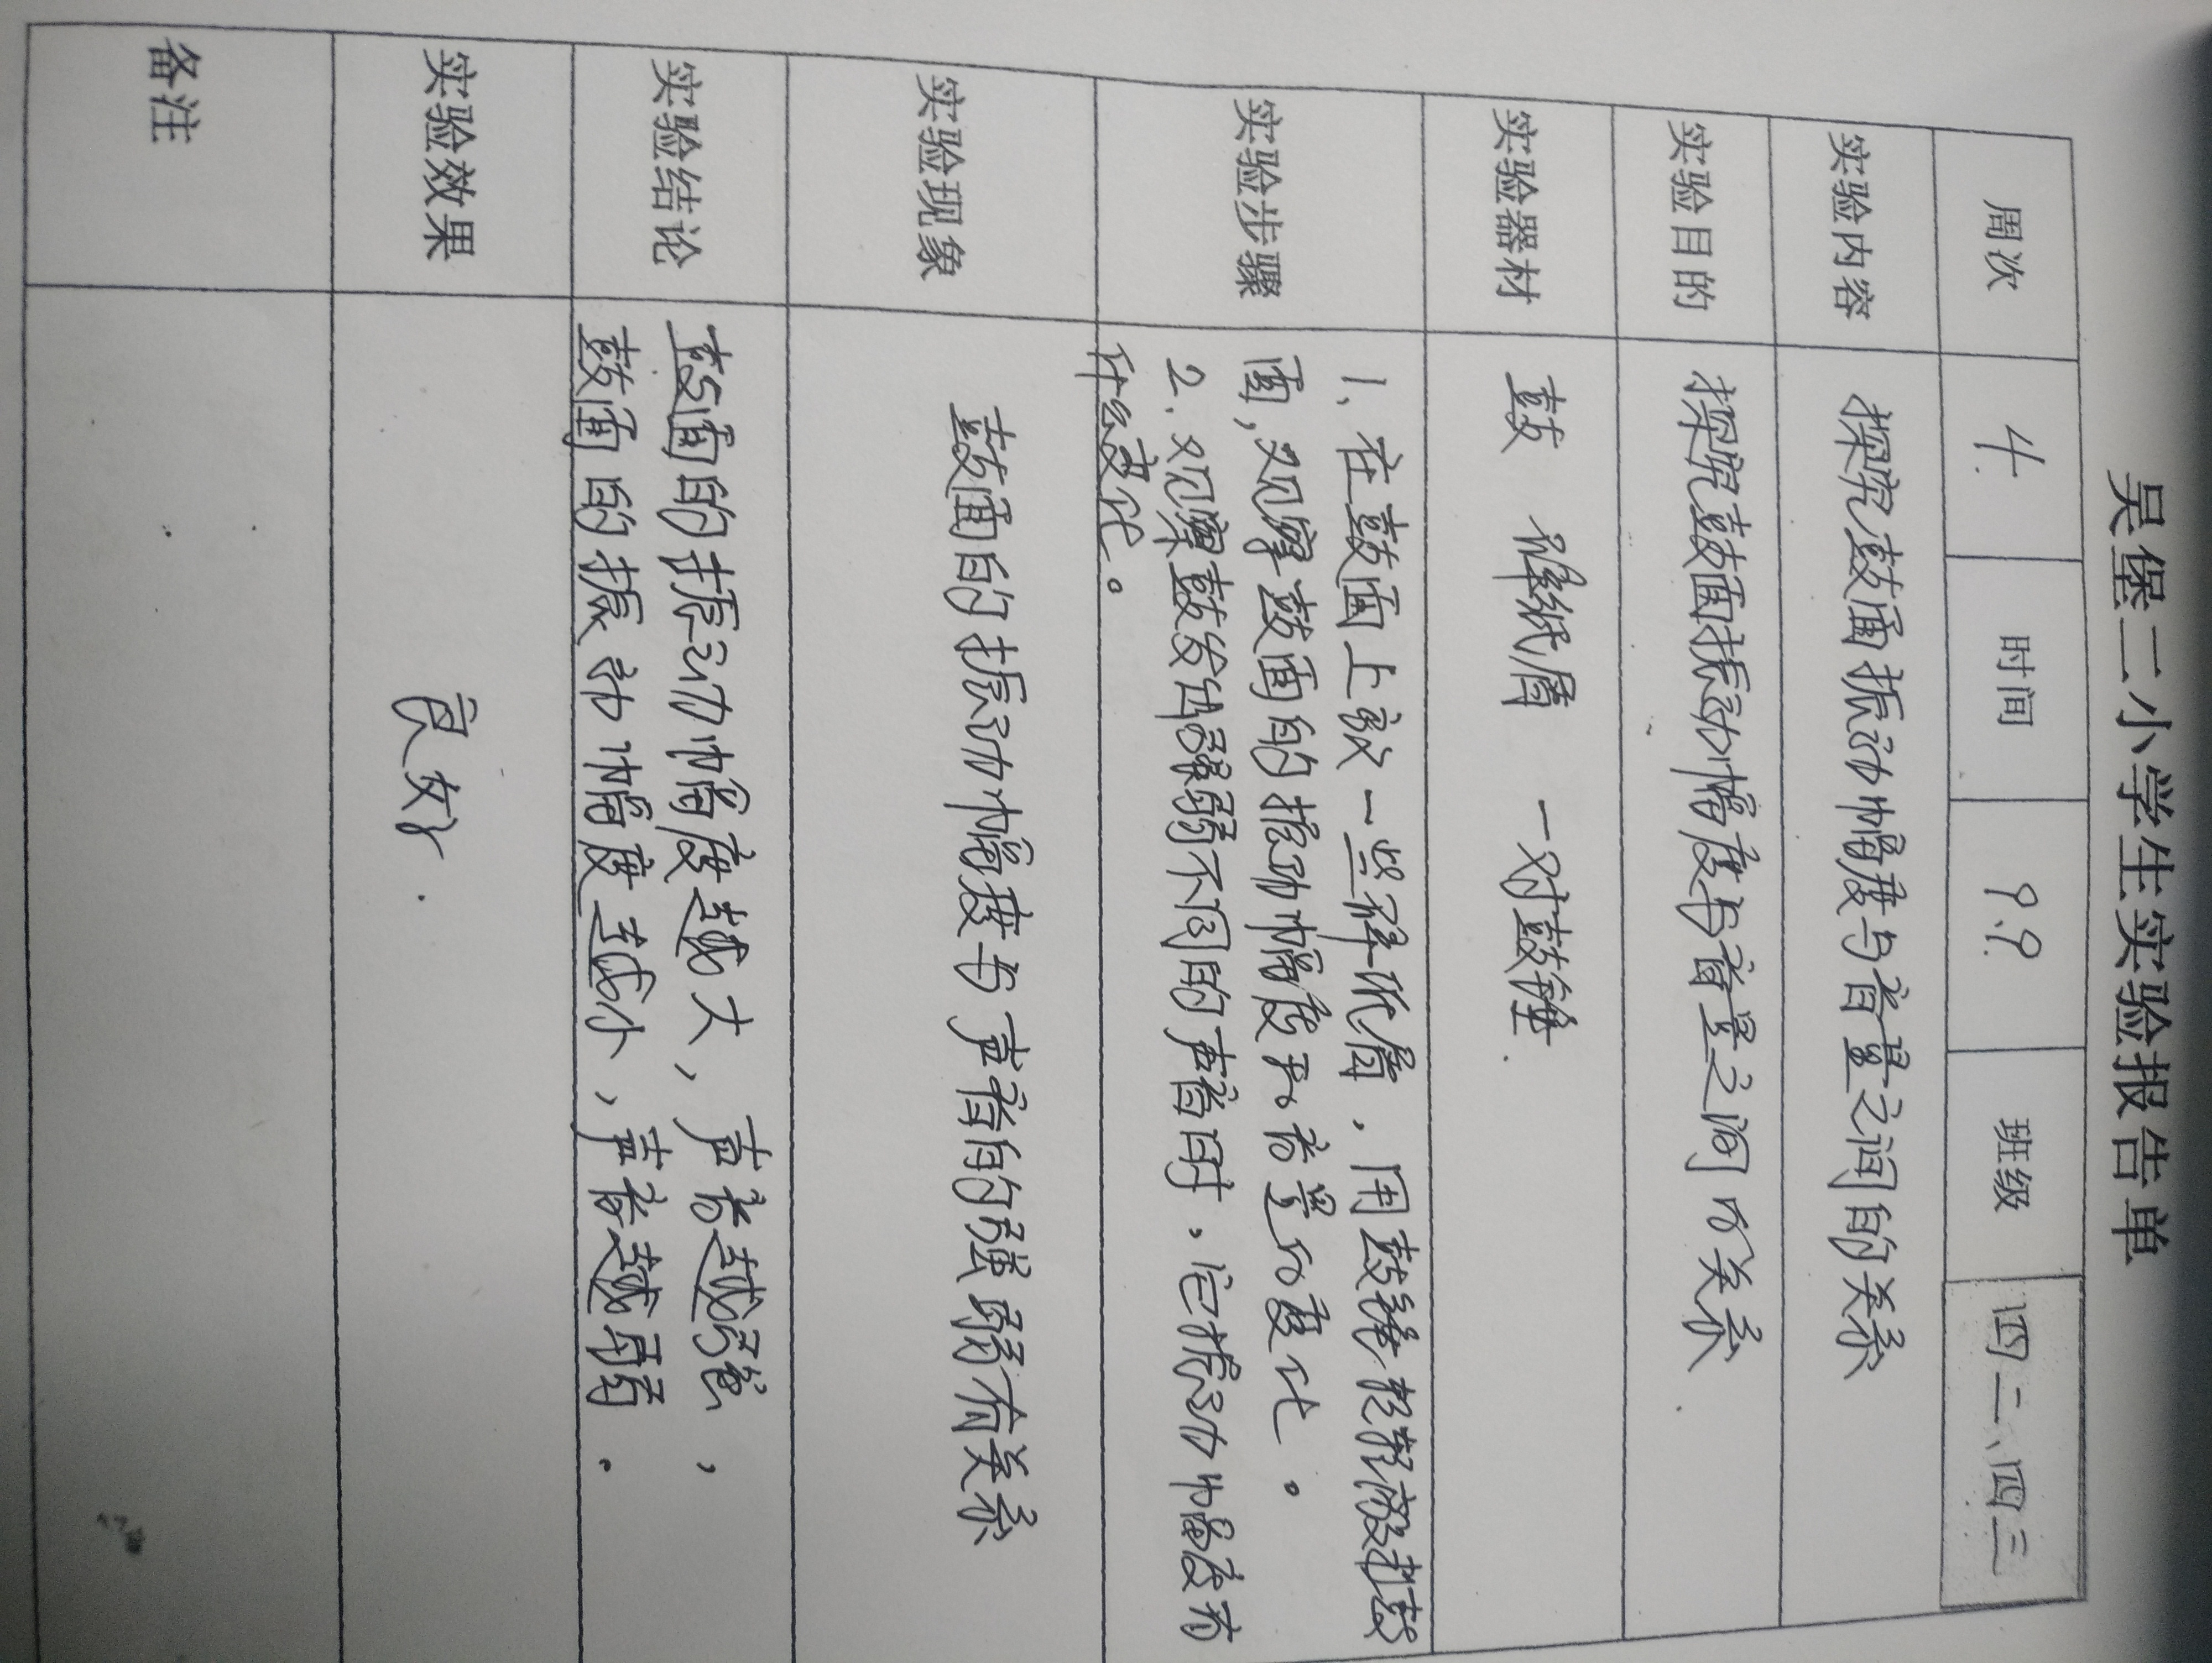 吴堡二小学生实验报告单
周次 4. 时间 9.9 班级 四二、四三
实验内容 探究鼓面振动幅度与音量之间的关系
实验目的 探究鼓面振动幅度与音量之间的关系.
实验器材 鼓 碎纸屑 一对鼓锤.
实验步骤 1、在鼓面上放一些碎纸屑.用鼓锤轻轻敲打鼓
面,观察鼓面的振动幅度和音量的变化。
2.观察鼓发出强弱不同的声音时.它振动幅度有
什么变化。
实验现象 鼓面的振动幅度与声音的强弱有关系
实验结论 鼓面的振动幅度越大,声音越强,
鼓面的振动幅度越小,声音越弱.
实验效果 良好.
备注